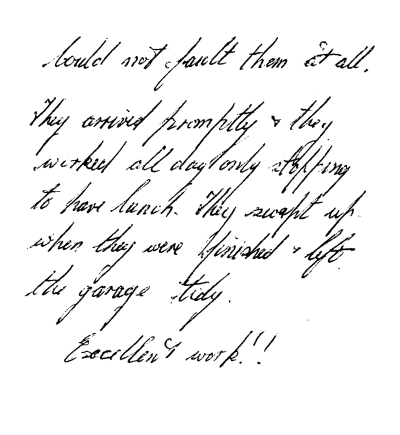 Could not fault them at all.
They arrived promptly & they
worked all day only stopping
to have lunch. They swept up
when they were finished & left
the garage tidy.
Excellent work!!